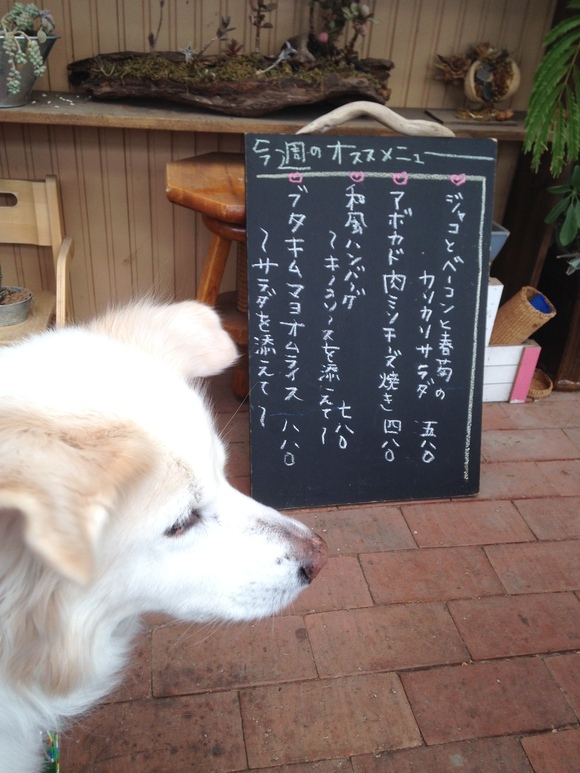 今週のオススメニュー
ジャコとベーコンと春菊の
カリカリサラダ 五八〇
アボカド肉ミンチーズ焼き 四八〇
和風ハンバーグ
〜キノコソースを添えて〜 七八〇
ブタキムマヨオムライス 八八〇
〜サラダを添えて〜